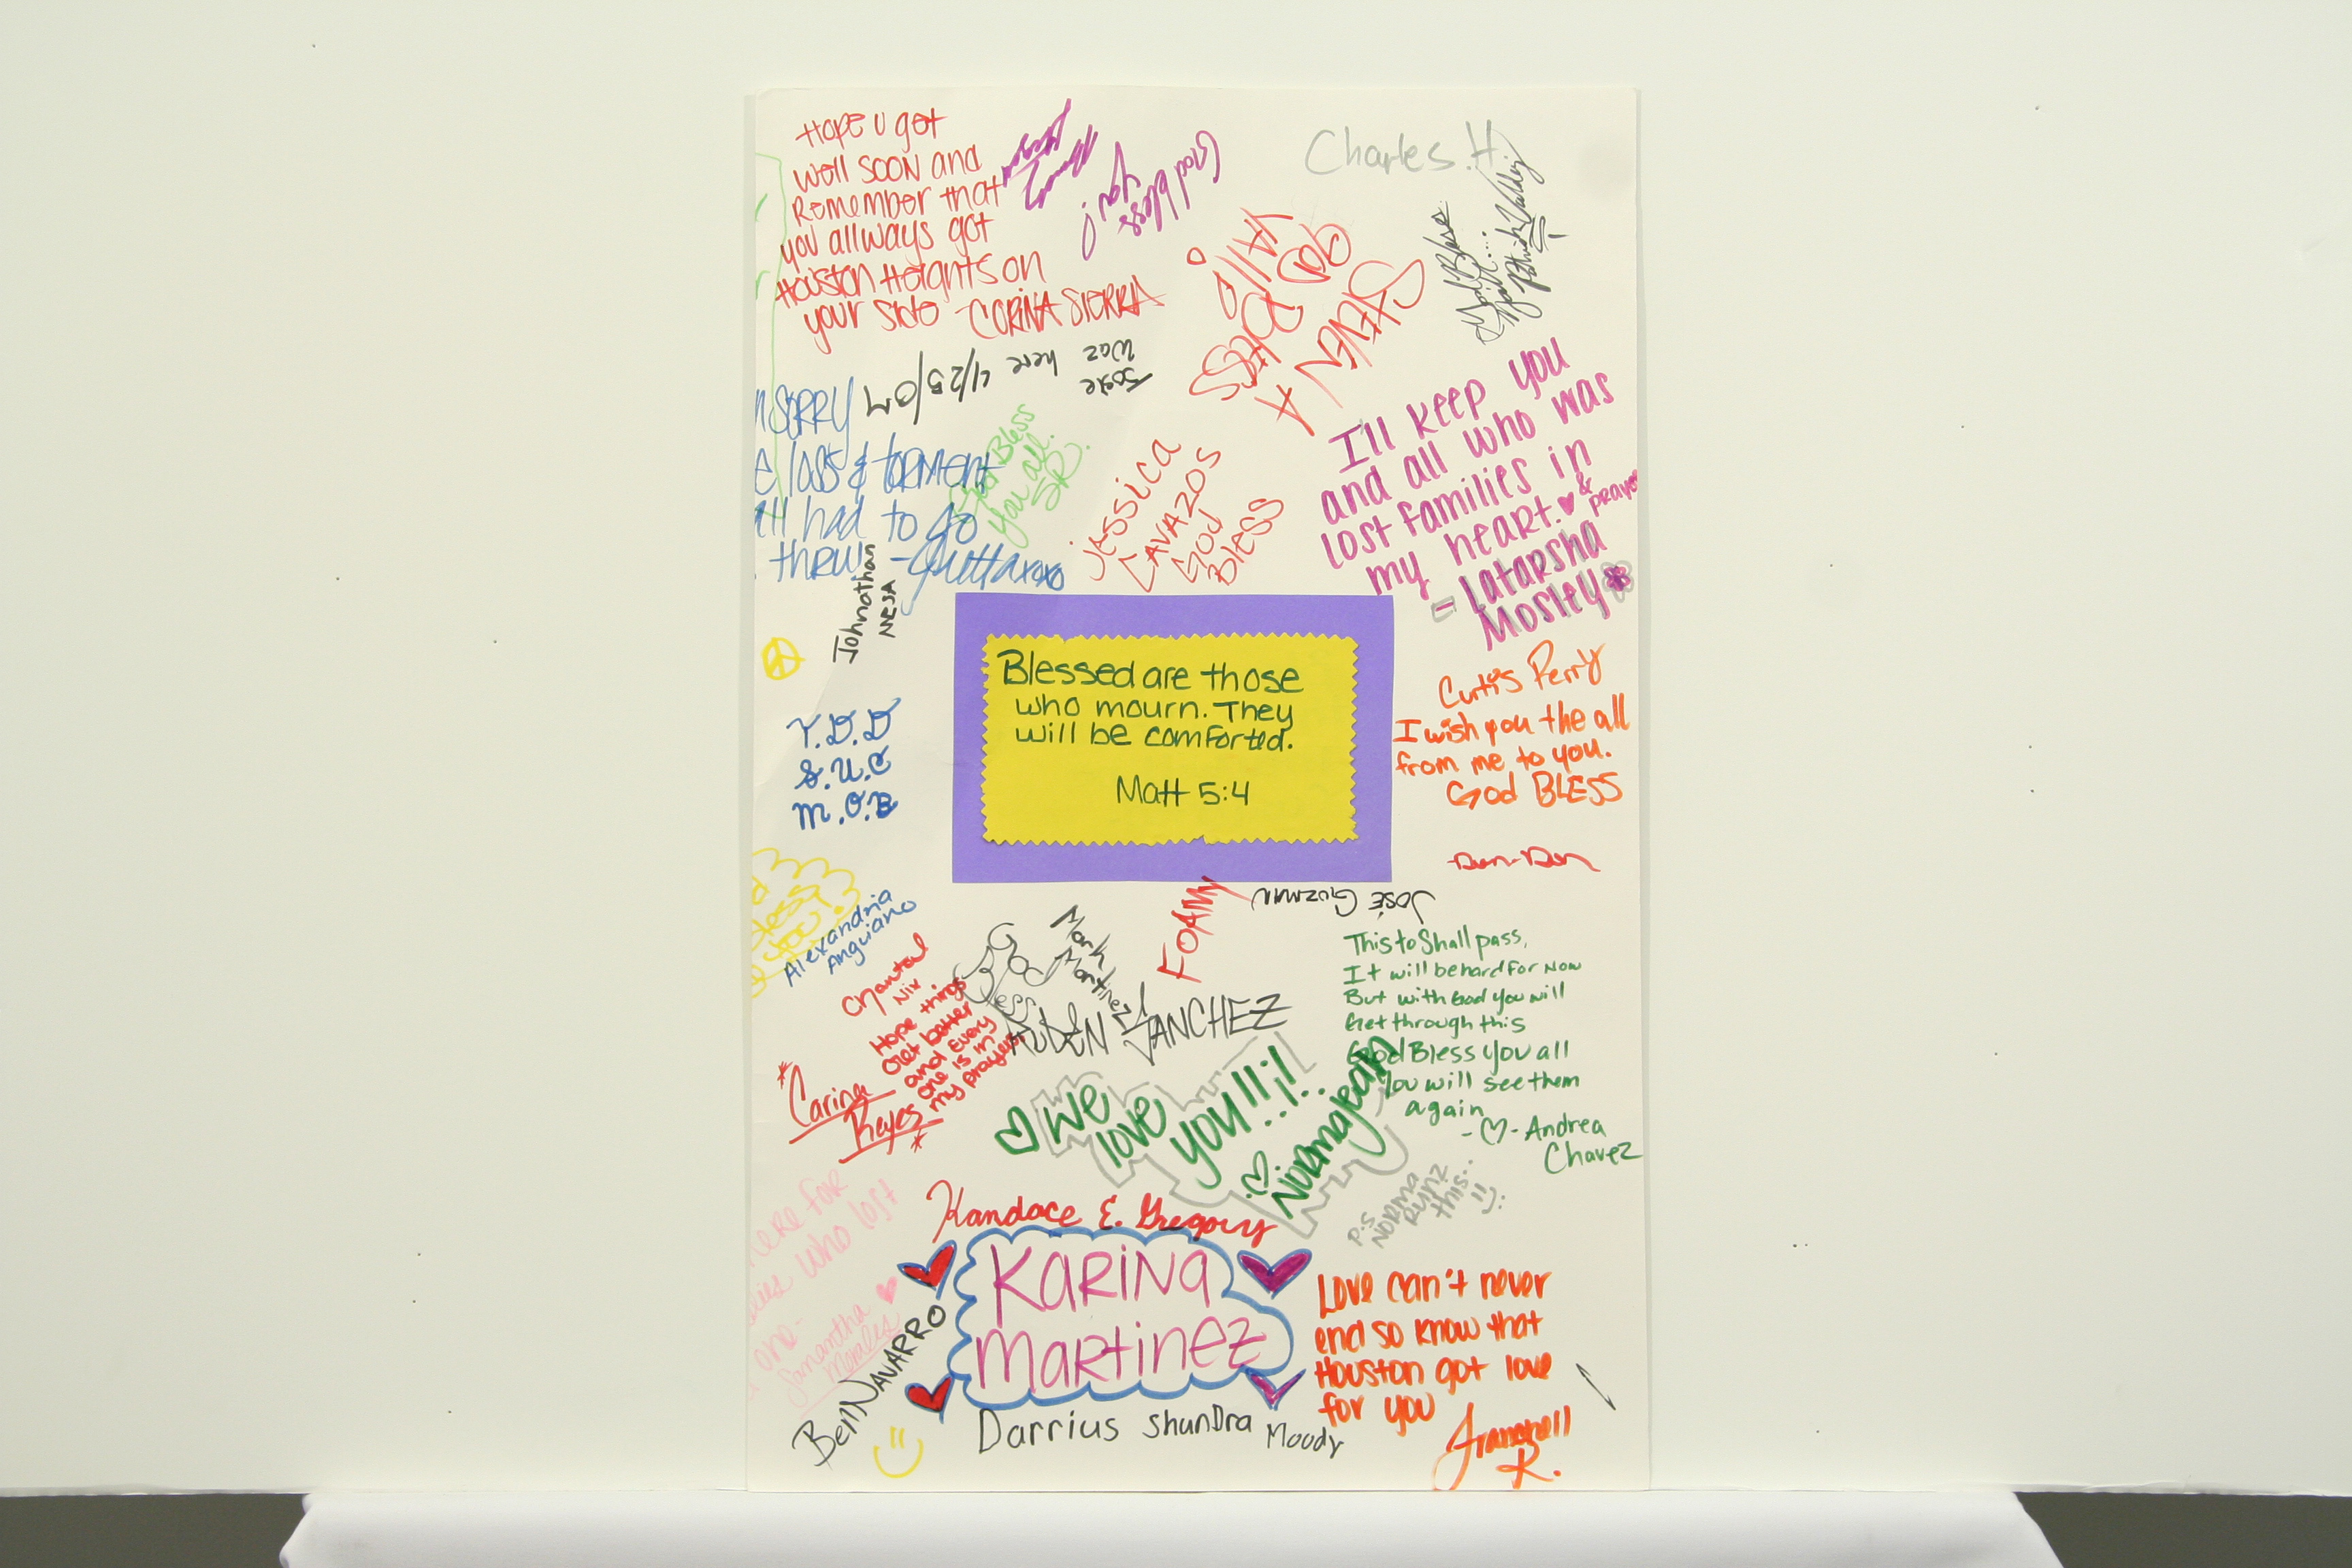 Hope u get
well soon and
Remember that
you allways got
Houston Heights on
your side - CORINA SIERRA
God bless
you!
Charles H.
God Bless
STEVEN A
GOD BLESS
YA'll
Jose
waz
here 4/25/07
SORRY
loss & torment
all had to go
threw
xoxo
God Bless
you all.
SR.
Jessica
Cavazos
God
Bless
I'll keep you
and all who was
lost families in
my heart. ♥ &
- Latarsha
Mosley
Johnathan
MESA
Blessed are those
who mourn. They
will be comforted.
Matt 5:4
Y.D.D
S.U.C
M.O.B
Curtis Perry
I wish you the all
from me to you.
God BLESS
- Dun-Dun
Jose Guzman
FOAMY
Alexandria
Anguiano
God
Bless
Mark
Martinez
RUBEN SANCHEZ
Chantal
Nix
Hope things
Get better
and Every
one is in
my prayers
*Carina
Reyes*
This to Shall pass,
It will be hard for Now
But with God you will
Get through this
God Bless you all
You will see them
again
-♡- Andrea
Chavez
♡ We
love
you!!!¡!...
♡ Normajean
P.S
NORMA
RUNZ
this...
Here for
who lost
one-
Samantha
Morales
Kandace E. Gregory
KARINA
MARTINEZ
Ben Navarro
Darrius Shundra Moody
Love can't never
end so know that
Houston got love
for you
R.